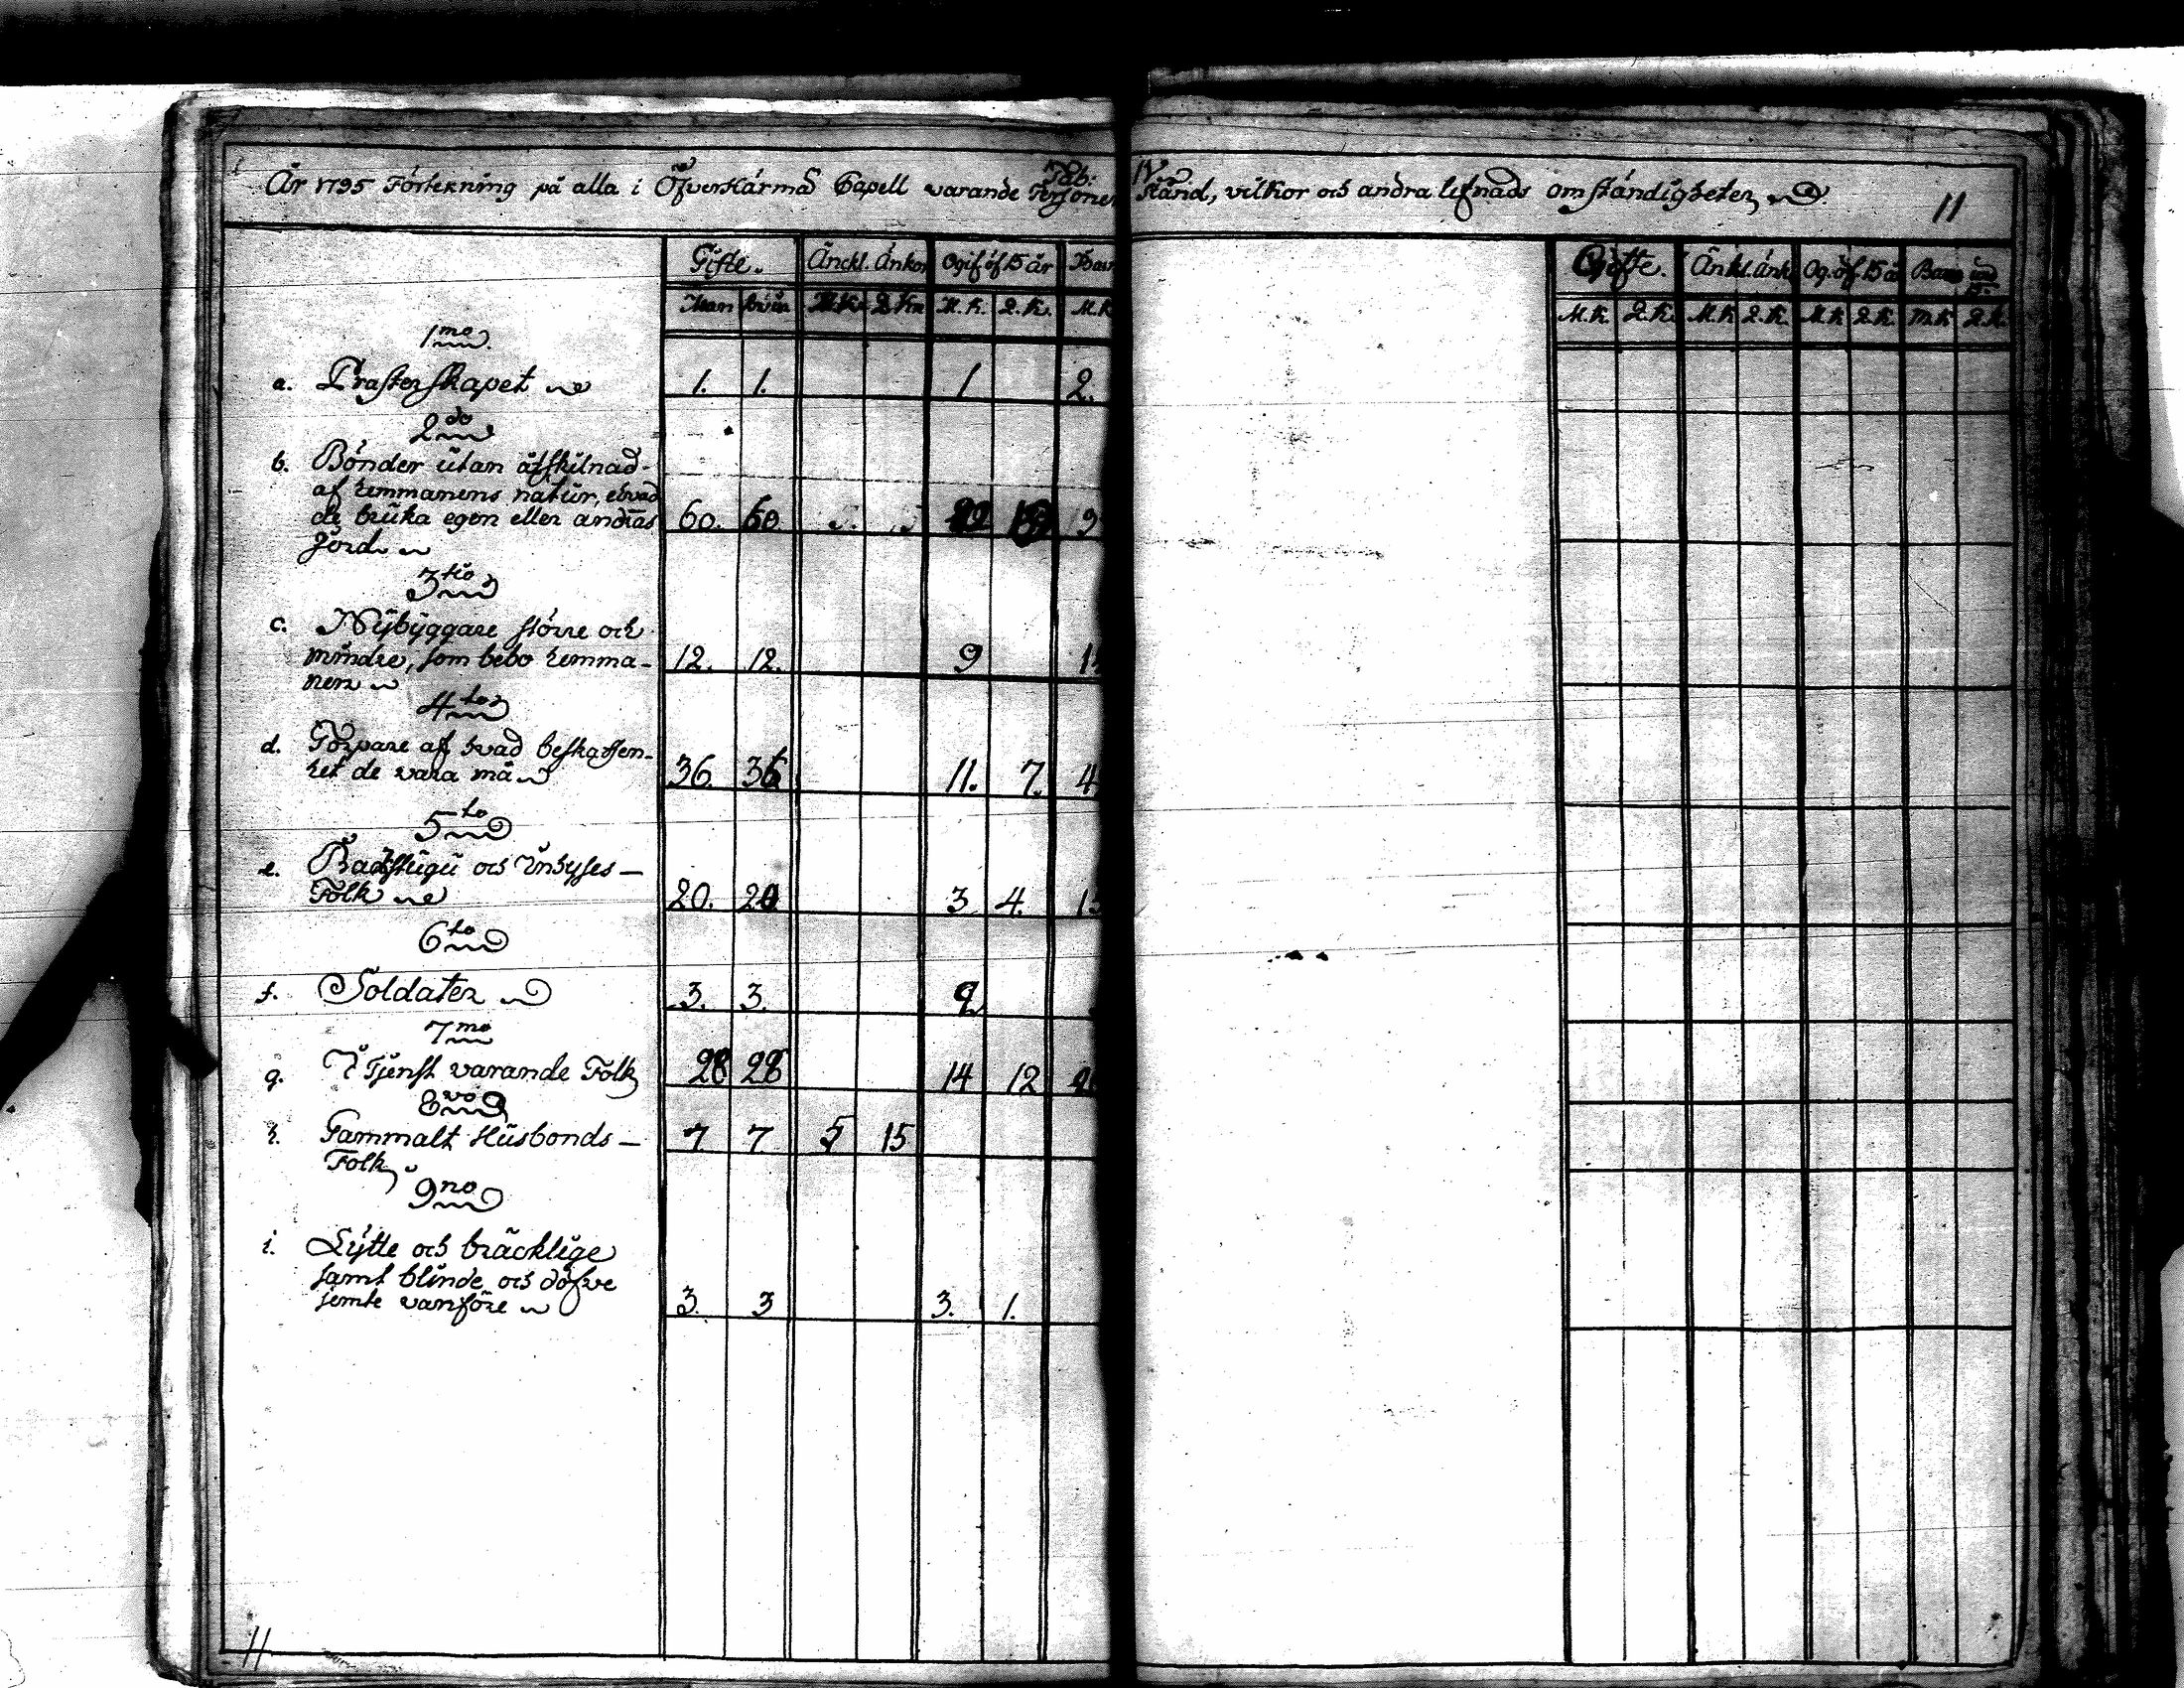 Tab: IV
År 1795 Förtekning på alla i Öfverkärmå Capell varande Personers Stånd, vilkor och andra lefnads omständigheter
11
Gifte. Änckl. Änkor Ogif öf 15 år Barn
Man M.K. Q.K. M.K. Q.K. M.K
Gifte. Änkl. Änk Og. öf. 15 år Barn und 15
M.K. Q.K. M.K Q.K. M.K Q.K. M.K Q.K.
1mo
a. Prästerskapet 1. 1. 1 2.
2do
b. Bönder utan åtskilnad
af hemmanens natur, e hvad
de bruka egen eller andras 60. 60
Jord
3tio
c. Nybyggare större och
mindre, som bebo hemma- 12. 12. 9
nen
4to
d. Torpare af hvad beskaffen-
het de vara må 36. 36 11. 7. 4
5to
e. Badstugu och Inhyses
Folk 20. 20 3 4.
6to
f. Soldater 3. 3.
7mo
g. I Tjenst varande Folk 28 28 14 12
8vo
h. Gammalt Husbonds- 7 7 5 15
Folk
9no
i. Lytte och bräcklige
samt blinde och döfve
jemte vanföre 3. 3 3. 1.
11